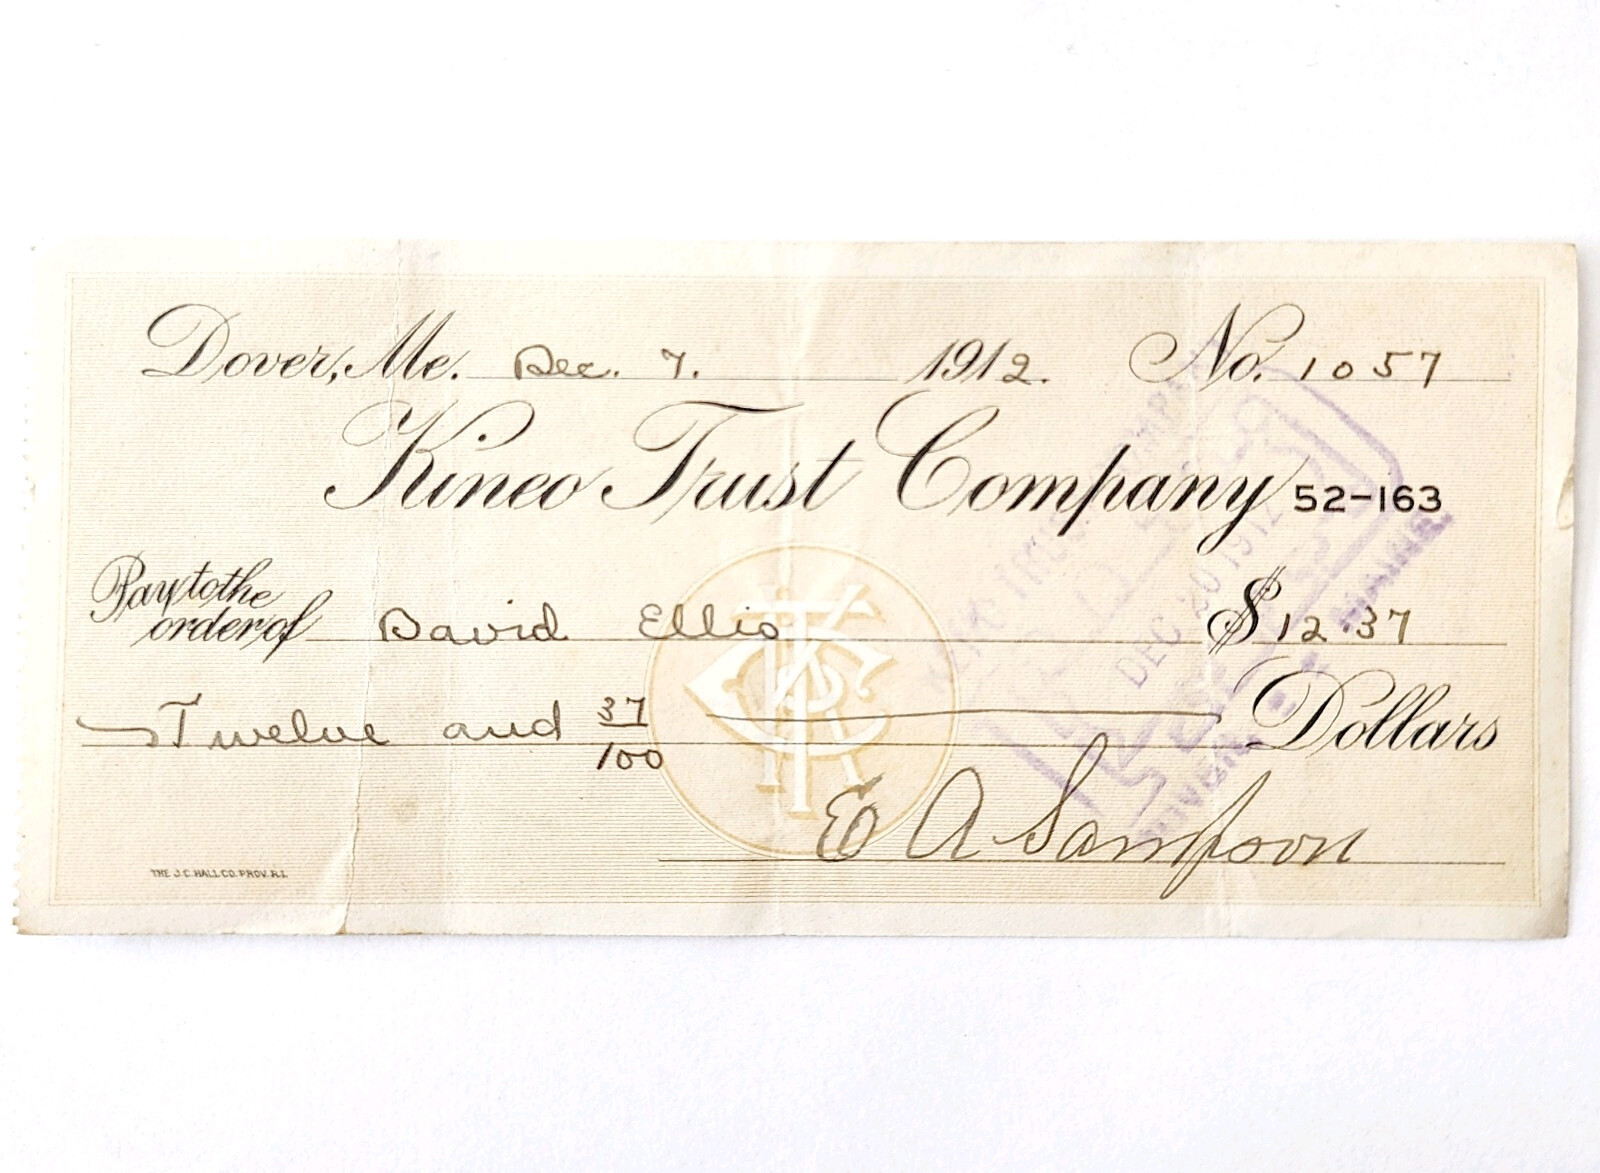 Dover, Me. Dec. 7. 1912. No. 1057
Kineo Trust Company 52-163
Pay to the
order of David Ellis $ 12.37
Twelve and 37/100 Dollars
E A Sampson
THE J.C. HALL CO. PROV. R.I.
DEC 20 1912